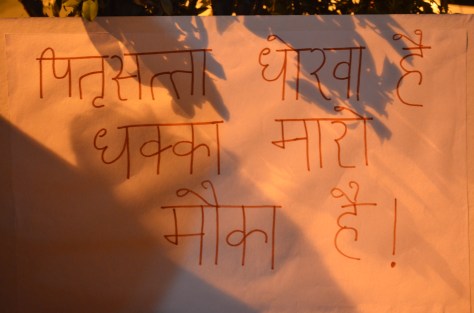 पितृसत्ता धोखा है
धक्का मारो
मौका है!